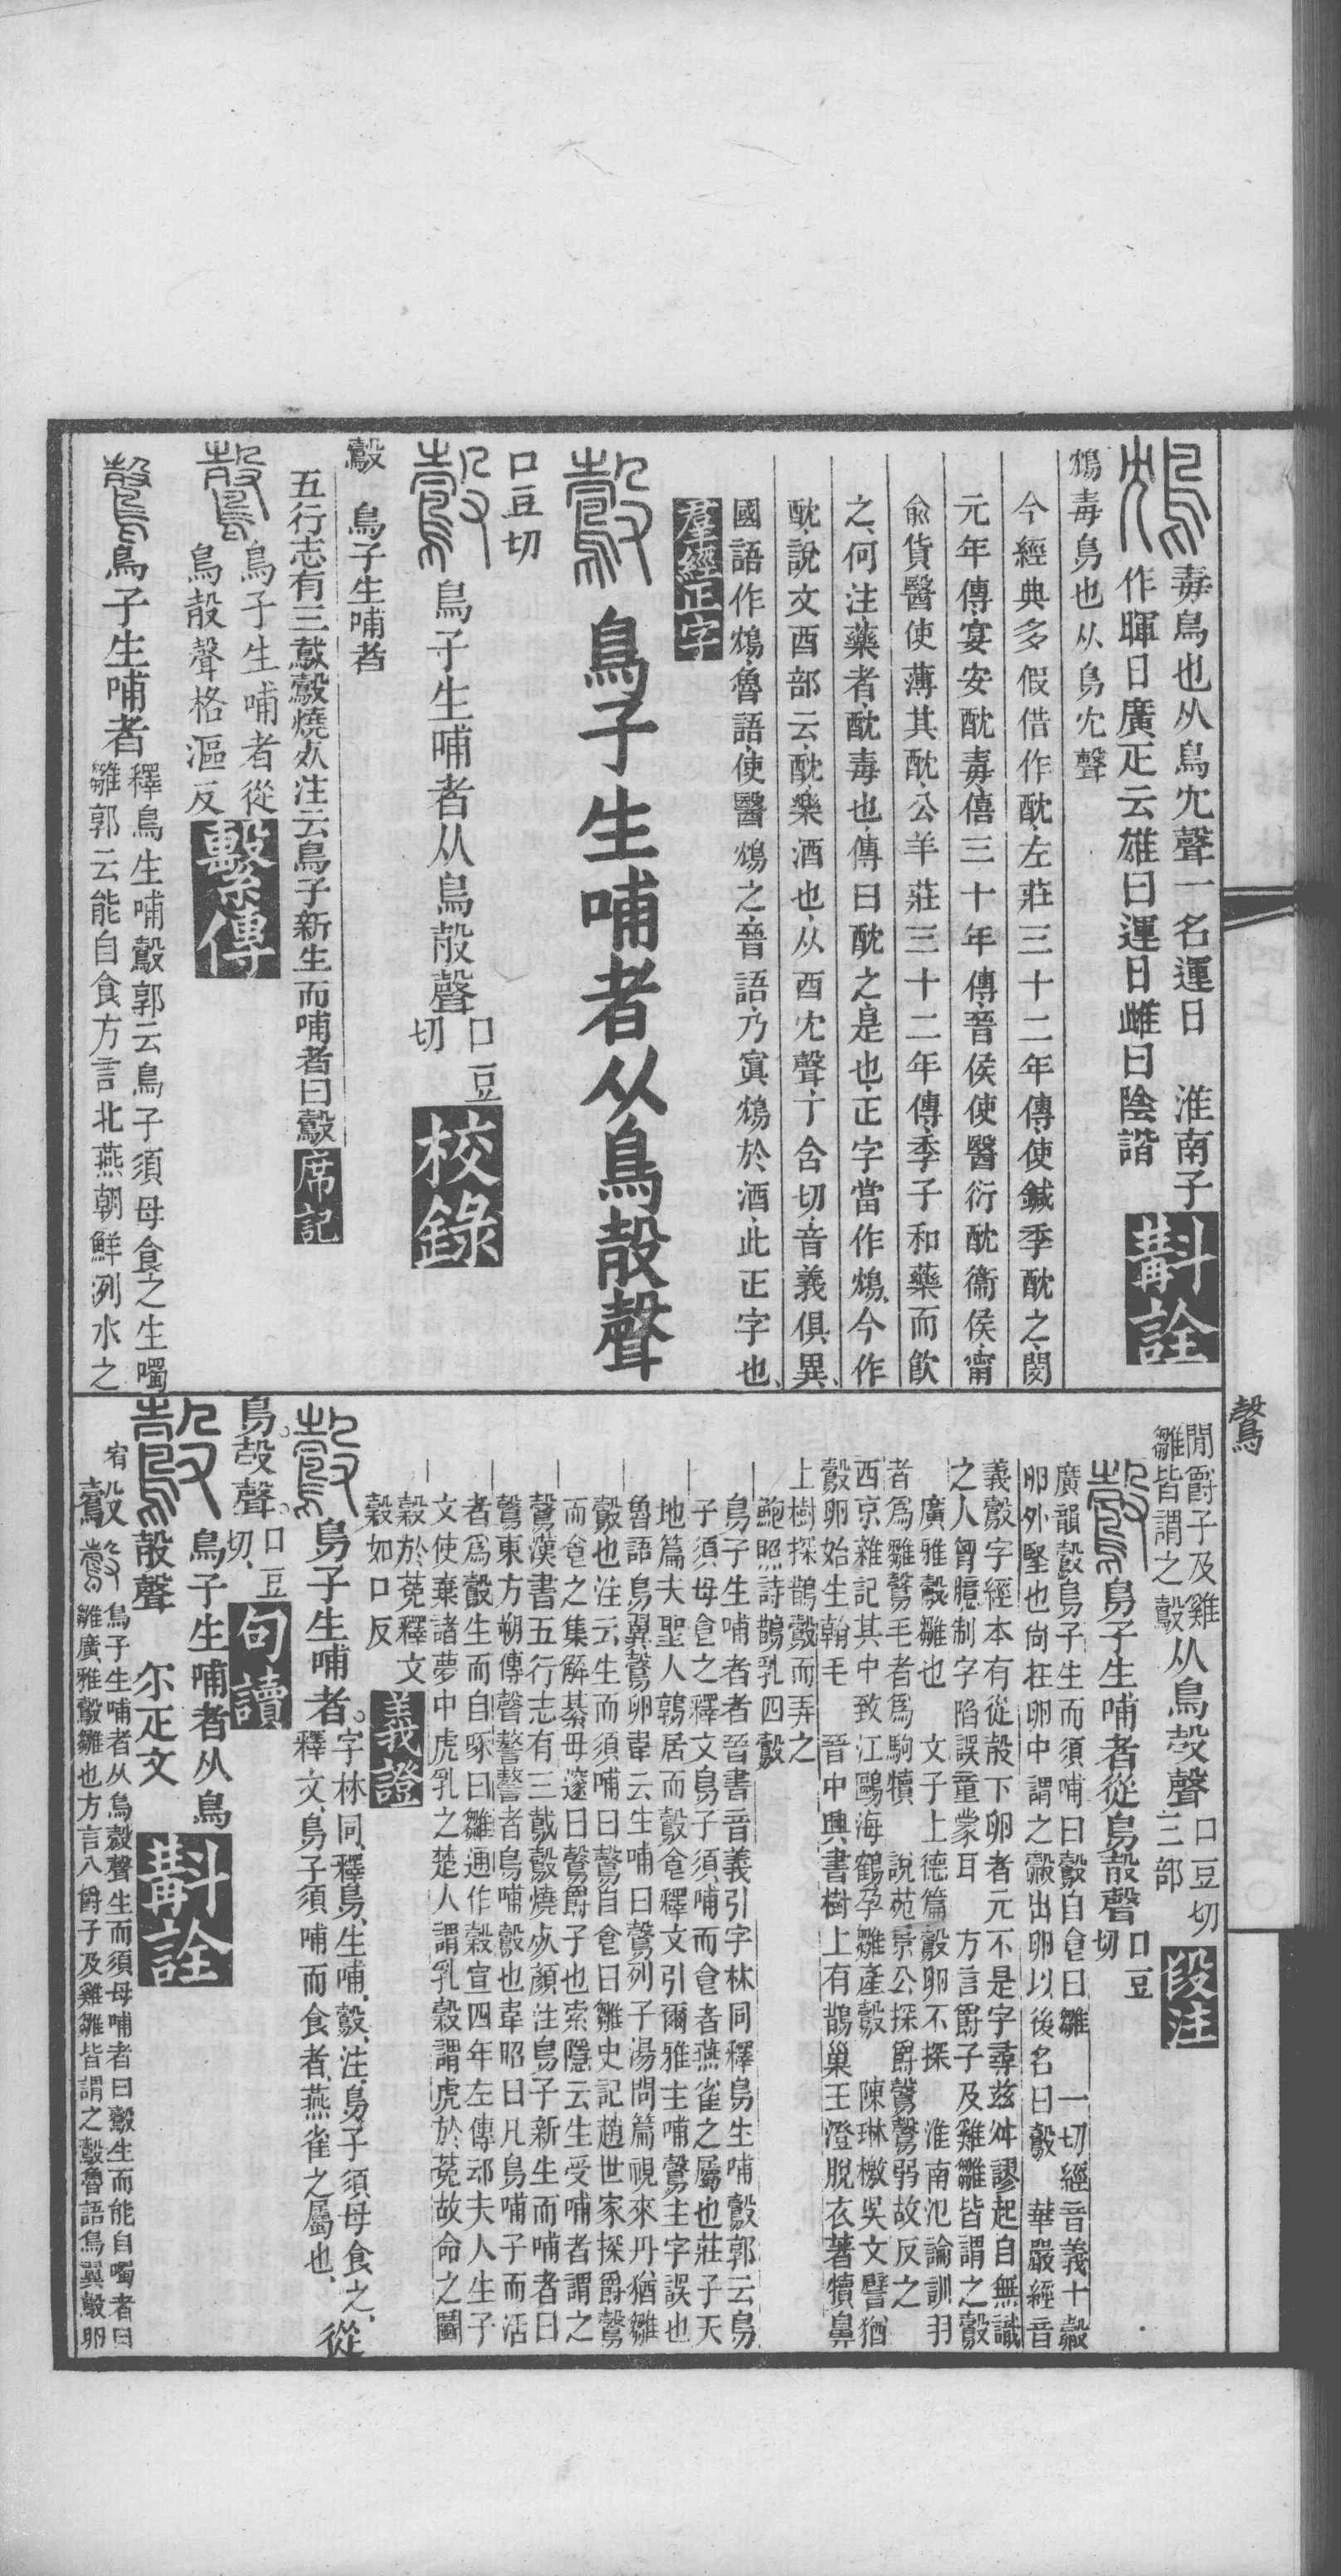 毒鳥也从鳥冘聲一名運日　淮南子
作暉日廣疋云雄曰運日雌曰陰諧
斠詮
鴆毒鳥也从鳥冘聲
今經典多假借作酖左莊三十二年傳使鍼季酖之閔
元年傳宴安酖毒僖三十年傳晉侯使醫衍酖衞侯甯
俞貨醫使薄其酖公羊莊三十二年傳季子和藥而飮
之何注藥者酖毒也傳曰酖之是也正字當作鴆今作
酖說文酉部云酖樂酒也从酉冘聲丁含切音義俱異
國語作鴆魯語使醫鴆之晉語乃寘鴆於酒此正字也
羣經正字
鷇鳥子生哺者从鳥㱿聲
口豆切
鷇鳥子生哺者从鳥㱿聲口豆切
校錄
鷇　鳥子生哺者
五行志有三䳒鷇燒死注云鳥子新生而哺者曰鷇
席記
鷇鳥子生哺者從
鳥㱿聲格漚反
繫傳
鷇鳥子生哺者
釋鳥生哺鷇郭云鳥子須母食之生噣
雛郭云能自食方言北燕朝鮮洌水之
閒爵子及雞
雛皆謂之鷇
从鳥㱿聲
口豆切
三部
段注
鷇鳥子生哺者從鳥㱿聲口豆切
一切經音義十鷇
廣韻鷇鳥子生而須哺曰鷇自食曰雛
卵外堅也尙在卵中謂之㲉出卵以後名曰鷇　華嚴經音
義鷇字經本有從㱿下卵者元不是字尋茲舛謬起自無識
之人胷臆制字陷誤童蒙耳　方言爵子及雞雛皆謂之鷇
廣雅鷇雛也　文子上德篇鷇卵不探　淮南氾論訓羽
者爲雛鷇毛者爲駒犢　說苑景公探爵鷇鷇弱故反之
西京雜記其中致江鷗海鶴孕雛產鷇　陳琳檄吳文譬猶
鷇卵始生翰毛　晉中興書樹上有鵲巢王澄脫衣著犢鼻
上樹探鵲鷇而弄之
鮑照詩鵲乳四鷇
鳥子生哺者者晉書音義引字林同釋鳥生哺鷇郭云鳥
子須母食之釋文鳥子須哺而食者燕雀之屬也莊子天
地篇夫聖人鶉居而鷇食釋文引爾雅生哺鷇主字誤也
魯語鳥翼鷇卵韋云生哺曰鷇列子湯問篇視來丹猶雛
鷇也注云生而須哺曰鷇自食曰雛史記趙世家探爵鷇
而食之集解綦毋邃曰鷇爵子也索隱云生受哺者謂之
鷇漢書五行志有三䳒鷇燒死顔注鳥子新生而哺者曰
鷇東方朔傳聲謷謷者鳥哺鷇也韋昭曰凡鳥哺子而活
者爲鷇生而自啄曰雛通作穀宣四年左傳䢵夫人生子
文使棄諸夢中虎乳之楚人謂乳穀謂虎於菟故命之鬭
穀於菟釋文
穀如口反
義證
鷇鳥子生哺者
字林同釋鳥生哺鷇注鳥子須母食之
釋文鳥子須哺而食者燕雀之屬也
從
鳥㱿聲
口豆切
句讀
鷇鳥子生哺者从鳥
㱿聲　尒疋文
斠詮
宥　鷇
鳥子生哺者从鳥㱿聲生而須母哺者曰鷇生而能自噣者曰
雛廣雅鷇雛也方言八爵子及雞雛皆謂之鷇魯語鳥翼鷇卵